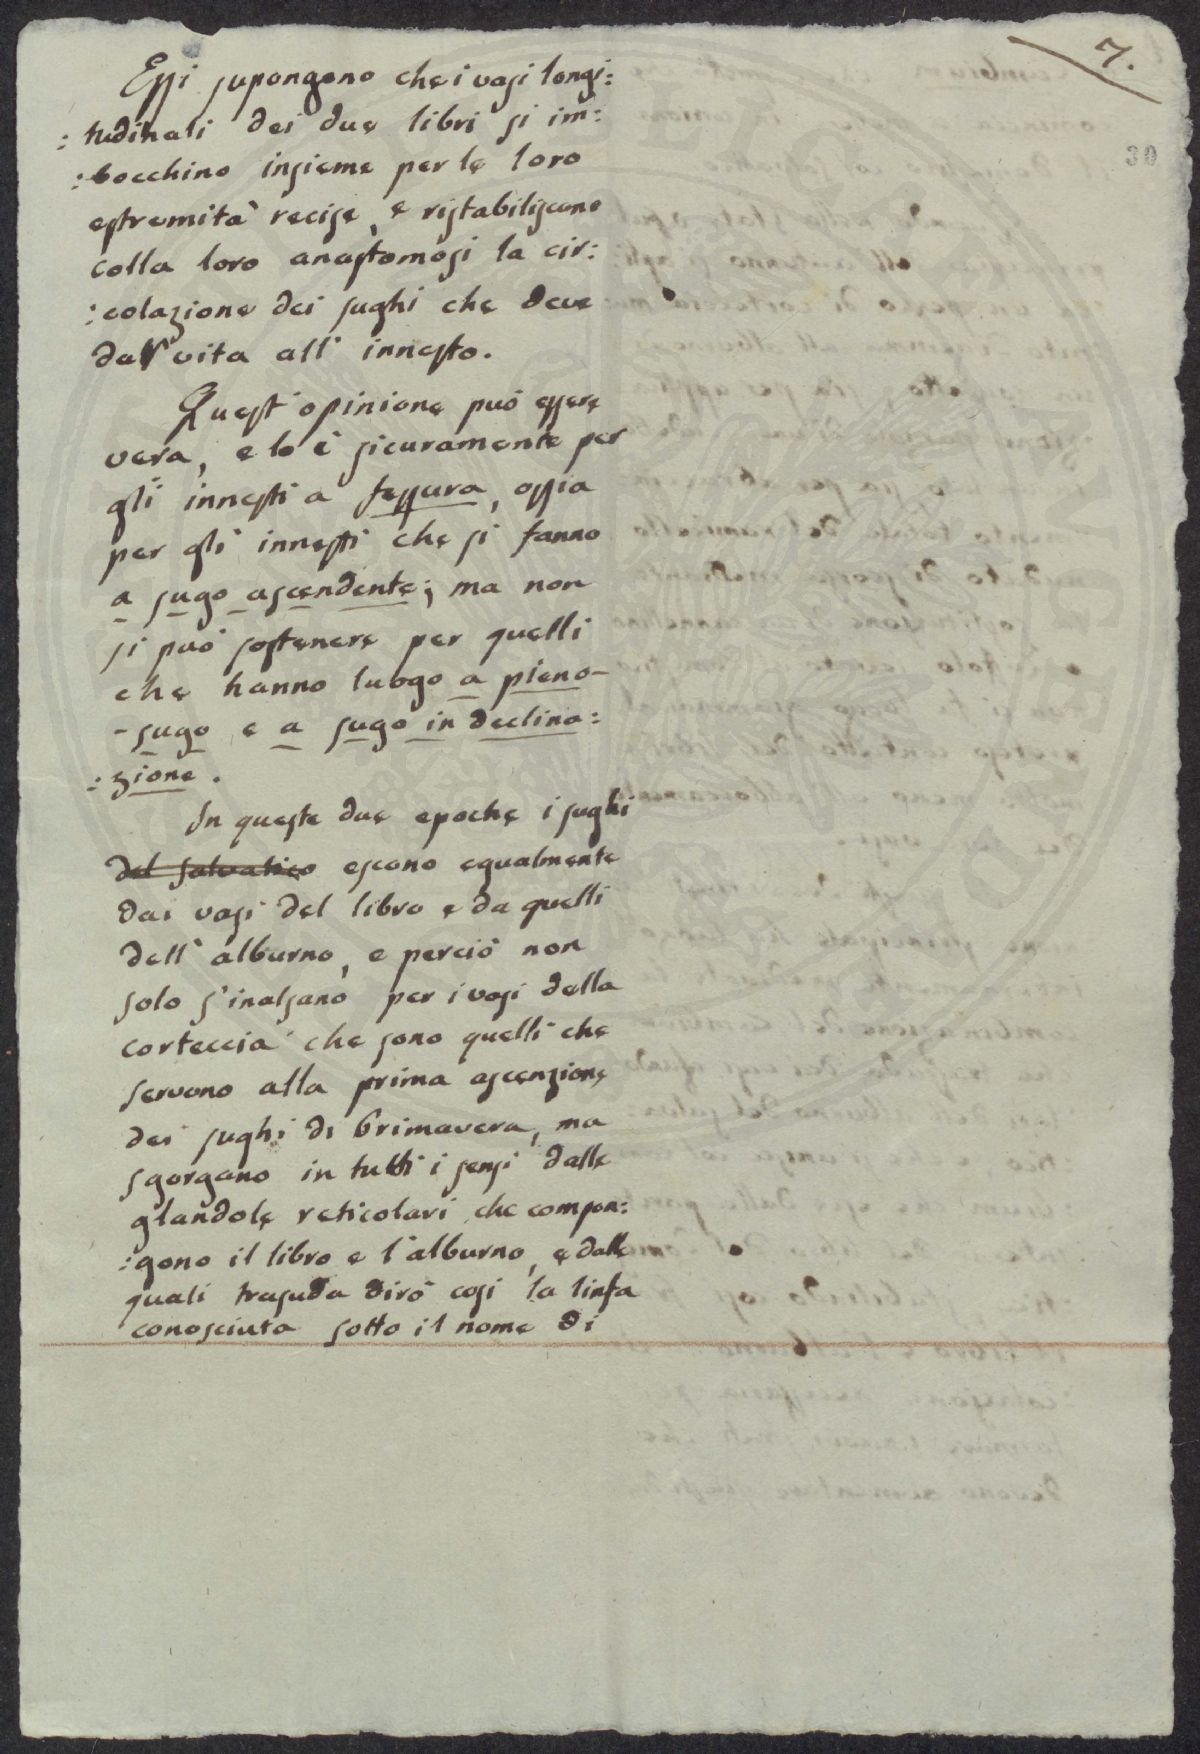 7.
30
Essi supongono che i vasi longi:
:tudinali dei due libri si im:
:bocchino insieme per le loro
estremità recise, e ristabiliscono
colla loro anastomosi la cir:
:colazione dei sughi che deve
dar vita all' innesto.
Quest' opinione può essere
vera, e lo è sicuramente per
gli innesti a fessura, ossia
per gli innesti che si fanno
a sugo ascendente; ma non
si può sostenere per quelli
che hanno luogo a pieno-
-sugo e a sugo in declina:
:zione.
In queste due epoche i sughi
del salvatico escono egualmente
dai vasi del libro e da quelli
dell' alburno, e perciò non
solo s'inalsano per i vasi della
corteccia che sono quelli che
servono alla prima ascenzione
dei sughi di Primavera, ma
sgorgano in tutti i sensi dalle
glandole reticolari che compon:
:gono il libro e l'alburno, e dalle
quali trasuda dirò così la linfa
conosciuta sotto il nome di